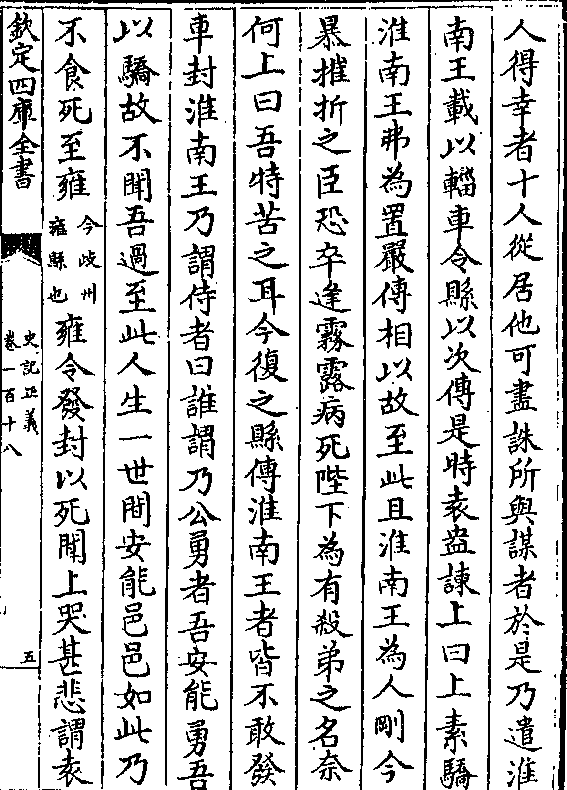 人得幸者十人從居他可盡誅所與謀者於是乃遣淮
南王載以輜車令縣以次傳是時袁盎諫上曰上素驕
淮南王弗為置嚴傅相以故至此且淮南王為人剛今
暴摧折之臣恐卒逢霧露病死陛下為有殺弟之名奈
何上曰吾特苦之耳今復之縣傳淮南王者皆不敢發
車封淮南王乃謂侍者曰誰謂乃公勇者吾安能勇吾
以驕故不聞吾過至此人生一世間安能邑邑如此乃
不食死至雍今岐州雍縣也雍令發封以死聞上哭甚悲謂袁
欽定四庫全書
史記正義
卷一百十八
五